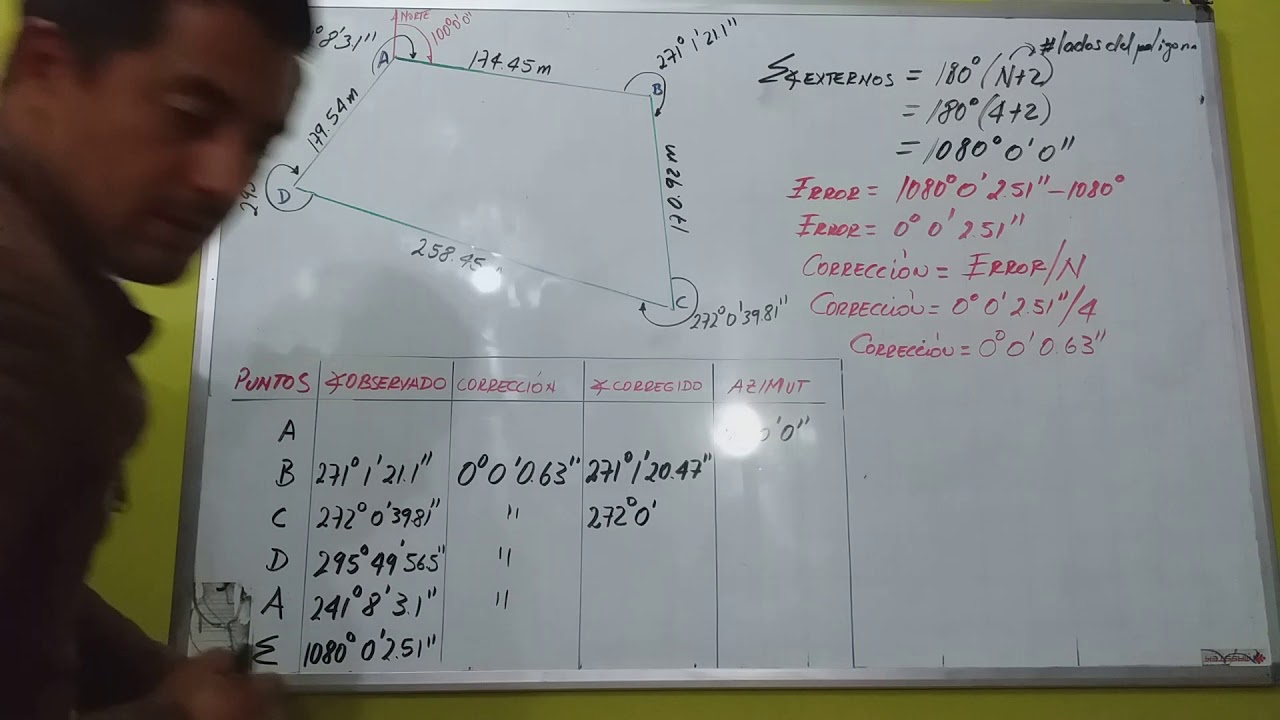 NORTE
100°0'0"
8'3.1"
A
174.45m
271°1'21.1"
B
179.54m
170.92m
D
258.45
C
272°0'39.81"
Σ∡EXTERNOS = 180°(N+2) #lados del poligono
= 180°(4+2)
= 1080°0'0"
ERROR = 1080°0'2.51"-1080°
ERROR = 0°0'2.51"
CORRECCIÓN = ERROR/N
CORRECCIÓN = 0°0'2.51"/4
CORRECCIÓN = 0°0'0.63"
PUNTOS ∡OBSERVADO CORRECCIÓN ∡CORREGIDO AZIMUT
A 0'0"
B 271°1'21.1" 0°0'0.63" 271°1'20.47"
C 272°0'39.81" " 272°0'
D 295°49'58.5" "
A 241°8'3.1" "
Σ 1080°0'2.51"